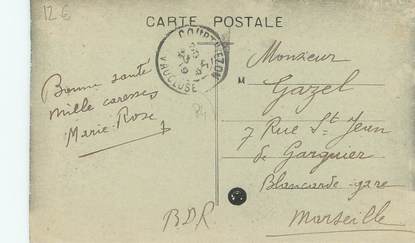 12 €
CARTE POSTALE
COURTHEZON
VAUCLUSE
Bonne santé
mille caresses
Marie-Rose
84
Monsieur
M Gazel
7 Rue St Jean
de Garguier
Blancarde-gare
Marseille
BDR